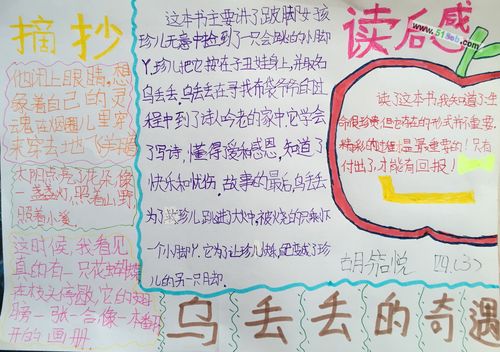 摘抄
他闭上眼睛,想
象着自己的灵
魂在烟圈儿里穿
来穿去地
太阳点亮了花朵,像
一盏盏灯,照着山野,
照着小溪。
这时候,我看见
真的有一只花蝴蝶
在枝头停歇,它的翅
膀一张一合像一本翻
开的画册。
这本书主要讲了跛脚女孩
珍儿无意中捡到了一只会跳的小脚
丫,珍儿把它按在了丑娃身上,并取名
乌丢丢。乌丢丢在寻找布袋爷爷的过
程中到了诗人吟老的家中,它学会
了写诗,懂得爱和感恩,知道了
快乐和忧伤。故事的最后,乌丢丢
为了珍儿跳进大火中,被火烧的只剩下
一个小脚丫,它为了让珍儿,便变成了珍
儿的另一只脚。
读后感
www.51bxb.com
读了这本书,我知道了生
命很珍贵,但它存在的形式并不重要,
精彩的过程才是最重要的!只有
付出了,才能有回报!
胡 悦 四.(3)
乌丢丢的奇遇